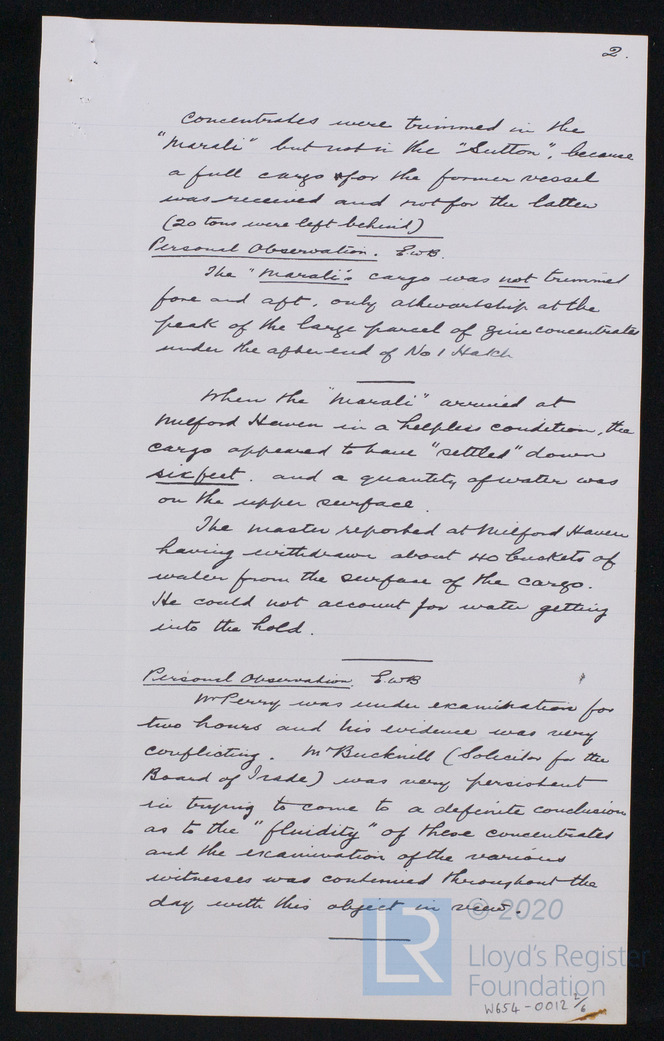 2.
Concentrates were trimmed in the
"Marali" but not in the "Sutton", because
a full cargo for the former vessel
was received and not for the latter
(20 tons were left behind)
Personal Observation. E.W.B.
The "Marali's cargo was not trimmed
fore and aft, only athwartship at the
peak of the large parcel of zinc concentrates
under the after end of No 1 Hatch
When the "Marali" arrived at
Milford Haven in a helpless condition, the
cargo appeared to have "settled" down
six feet. and a quantity of water was
on the upper surface.
The master reported at Milford Haven
having withdrawn about 40 buckets of
water from the surface of the cargo.
He could not account for water getting
into the hold.
Personal Observation. E.W.B
Mr Perry was under examination for
two hours and his evidence was very
conflicting. Mr Bucknill (Solicitor for the
Board of Trade) was very persistent
in trying to come to a definite conclusion
as to the "fluidity" of these concentrates
and the examination of the various
witnesses was continued throughout the
day with this object in view.
© 2020
LR
Lloyd's Register
Foundation
W654-0012 2/6